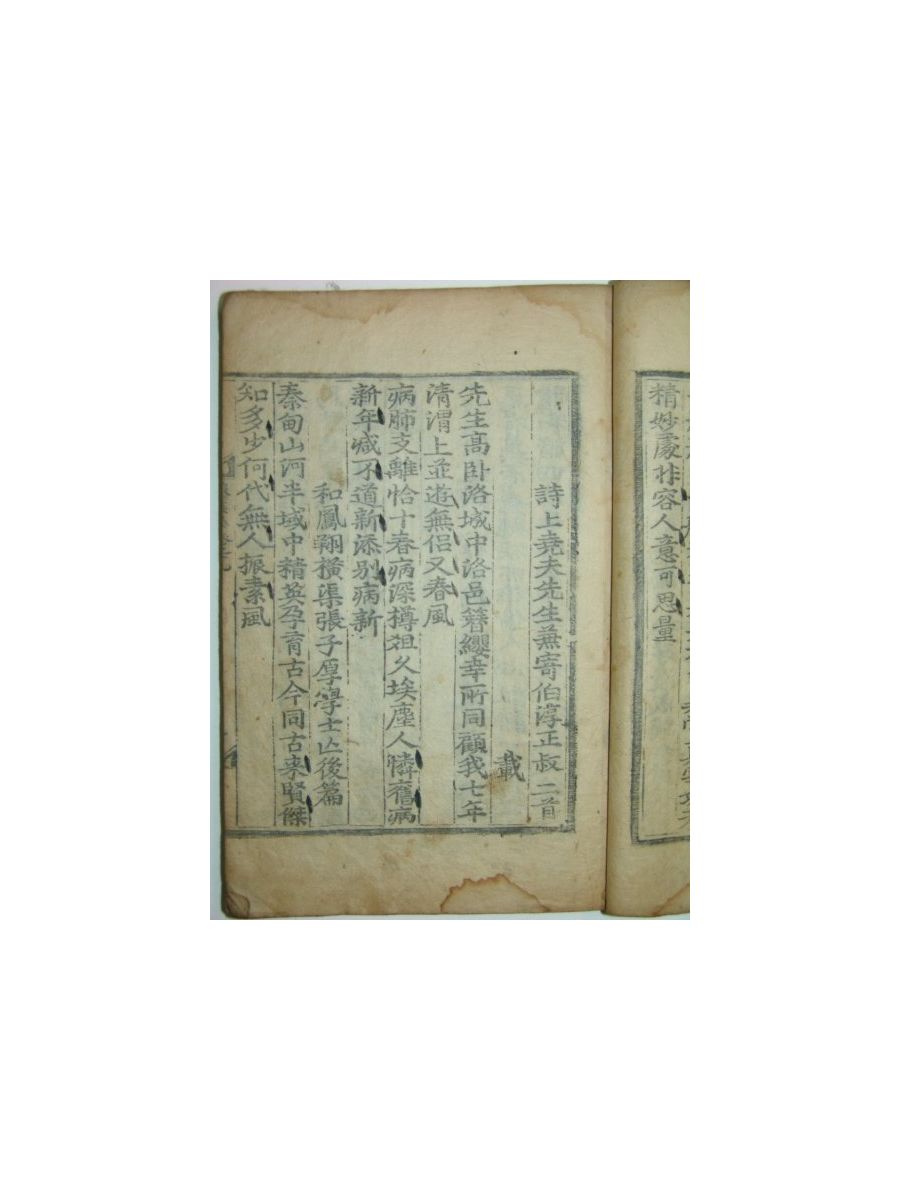 精妙處非容人意可思量
詩上堯夫先生兼寄伯淳正叔二首
載
先生高卧洛城中洛邑簪纓幸所同顧我七年
清渭上並遊無侶又春風
病肺支離恰十春病深樽俎久埃塵人憐舊病
新年減不道新添别病新
和鳳翔横渠張子厚學士亡後篇
秦甸山河半域中精英孕育古今同古来賢傑
知多少何代無人振素風